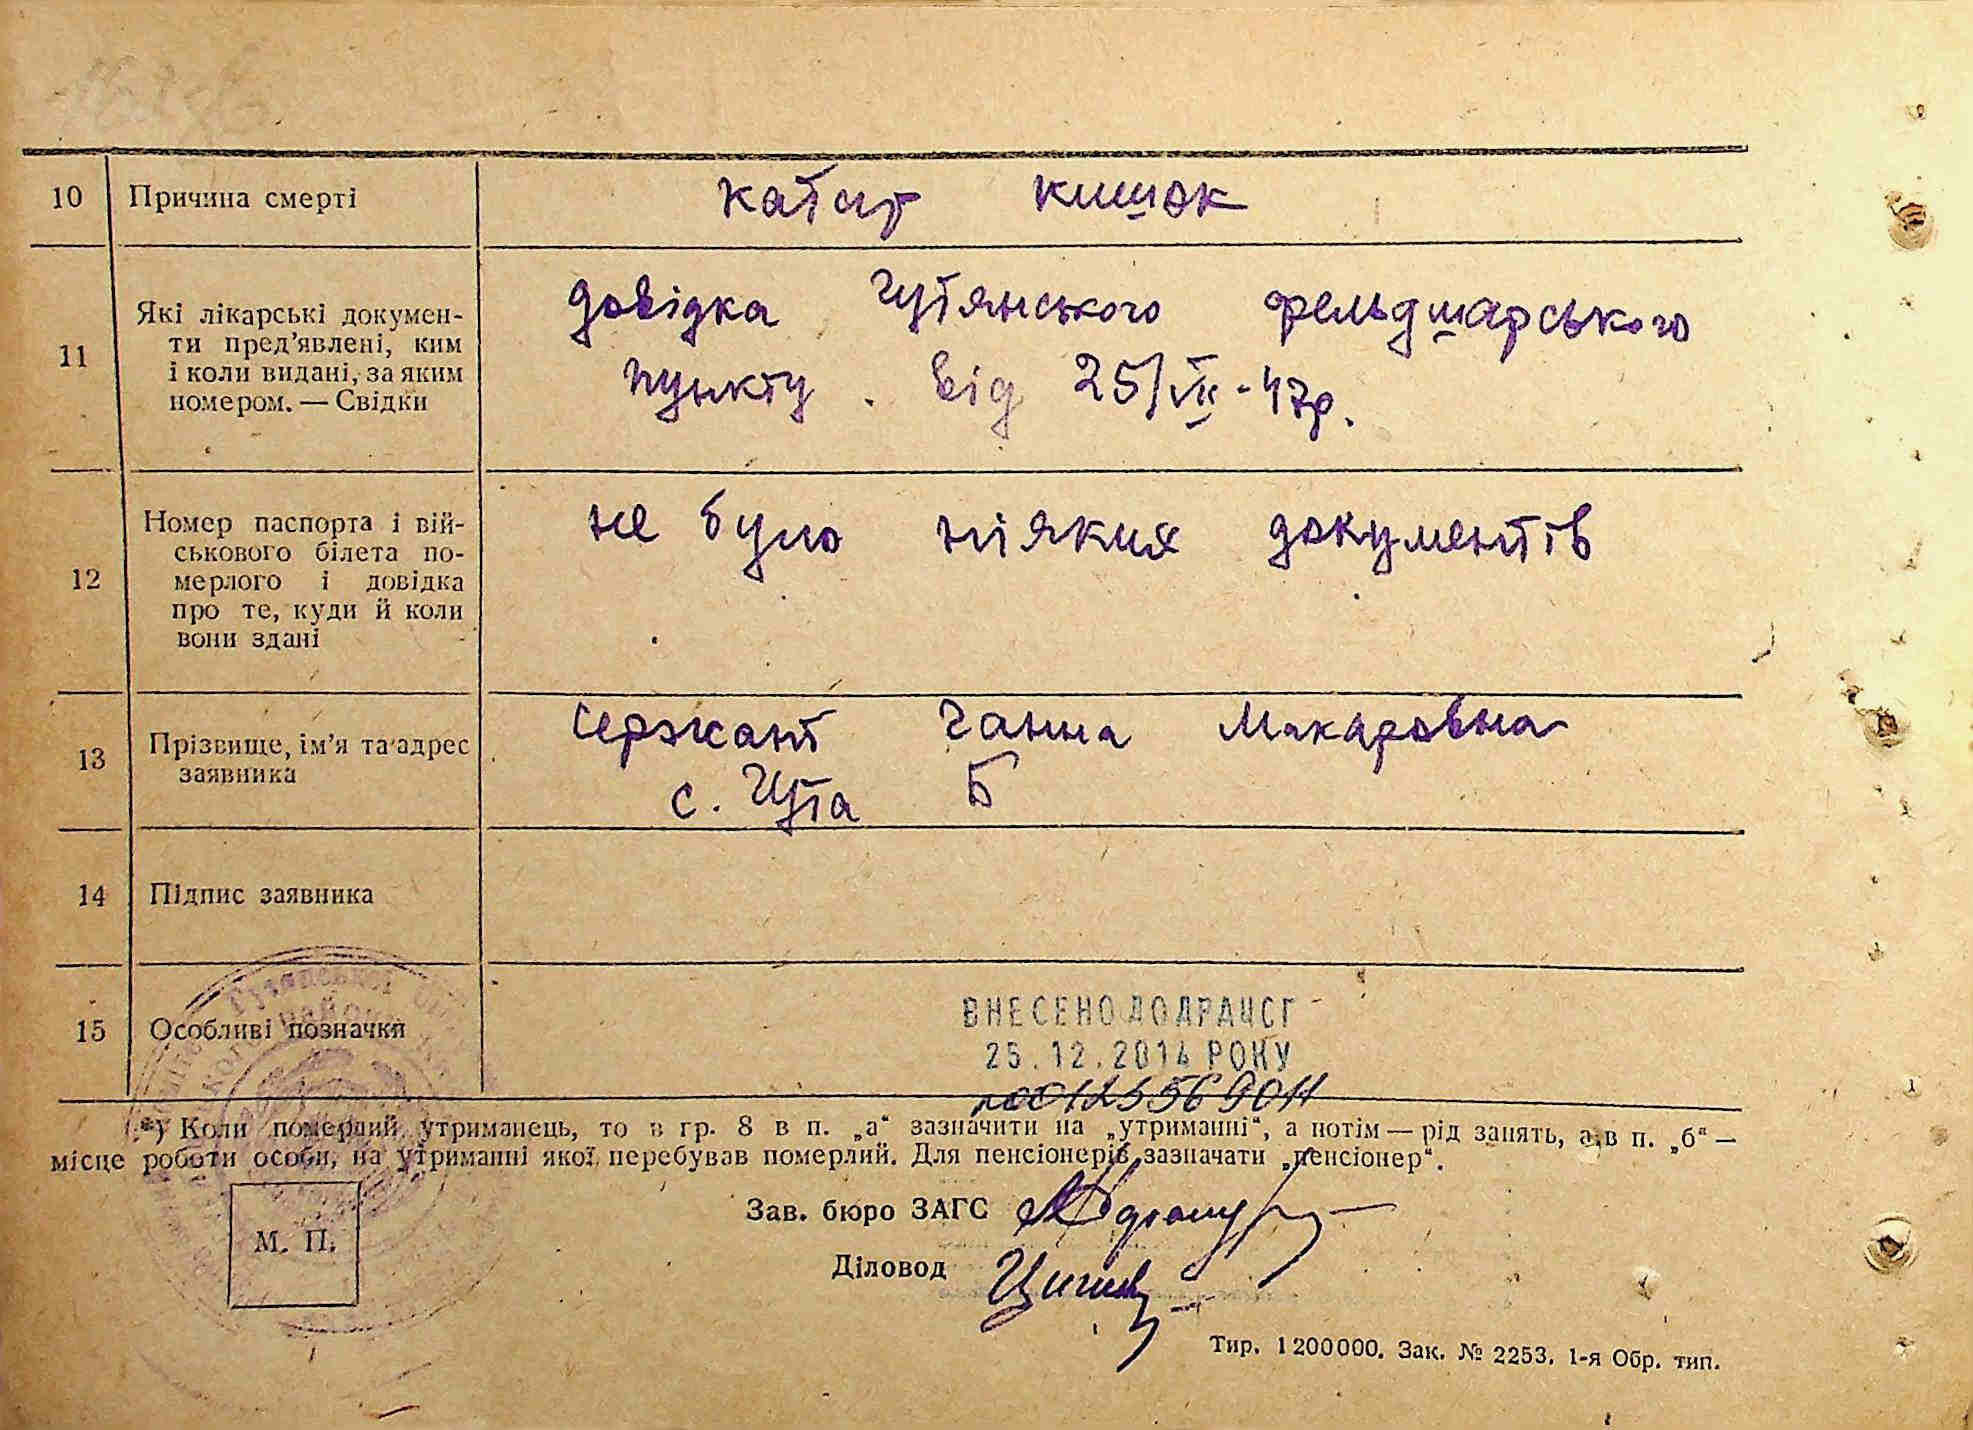 10 Причина смерті катар кишок
11 Які лікарські докумен-
ти пред'явлені, ким
і коли видані, за яким
номером. — Свідки
довідка Гутянського фельдшарського
пункту. від 25/VII-47р.
12 Номер паспорта і вій-
ськового білета по-
мерлого і довідка
про те, куди й коли
вони здані
не було ніяких документів
13 Прізвище, ім'я та адрес
заявника
Сержант Ганна Макаровна
с. Гута Б
14 Підпис заявника
15 Особливі позначки
ВНЕСЕНО ДО ДРАЦСГ
25.12.2014 РОКУ
*) Коли померлий утриманець, то в гр. 8 в п. „а" зазначити на „утриманні", а потім — рід занять, а в п. „б" —
місце роботи особи, на утриманні якої перебував померлий. Для пенсіонерів зазначати „пенсіонер".
Зав. бюро ЗАГС
М. П.
Діловод
Тир. 1200000. Зак. № 2253. 1-я Обр. тип.